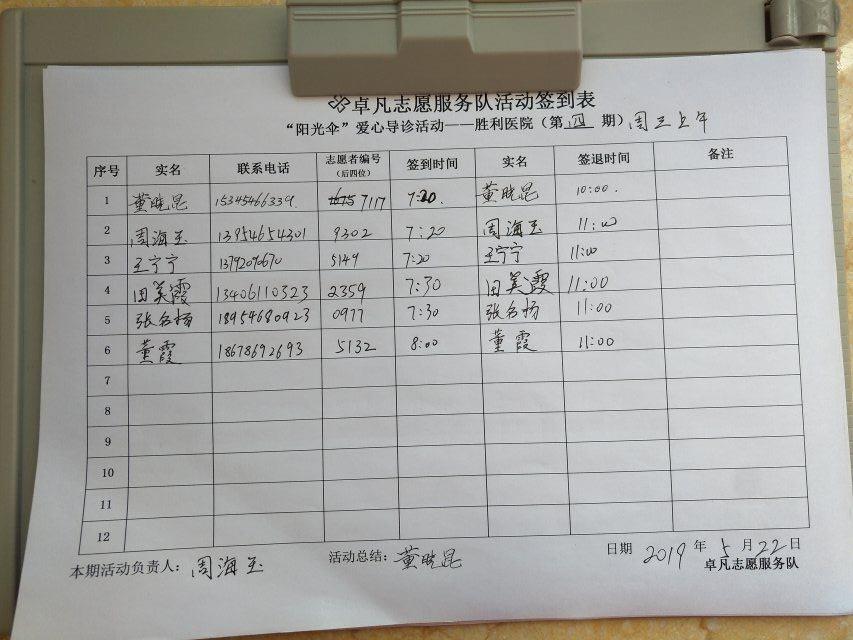 卓凡志愿服务队活动签到表
“阳光伞”爱心导诊活动——胜利医院（第四期）周三上午
序号 实名 联系电话 志愿者编号（后四位） 签到时间 实名 签退时间 备注
1 董晓昆 15345466339. 7117 7:20. 董晓昆 10:00.
2 周海玉 13954654301 9302 7:20 周海玉 11:00
3 王宁宁 5149 7:20 王宁宁 11:00
4 田美霞 13406110323 2359 7:30 田美霞 11:00
5 张名扬 18954680923 0977 7:30 张名扬 11:00
6 董霞 18678692693 5132 8:00 董霞 11:00
7
8
9
10
11
12
本期活动负责人：周海玉 活动总结：董晓昆 日期 2019年5月22日
卓凡志愿服务队